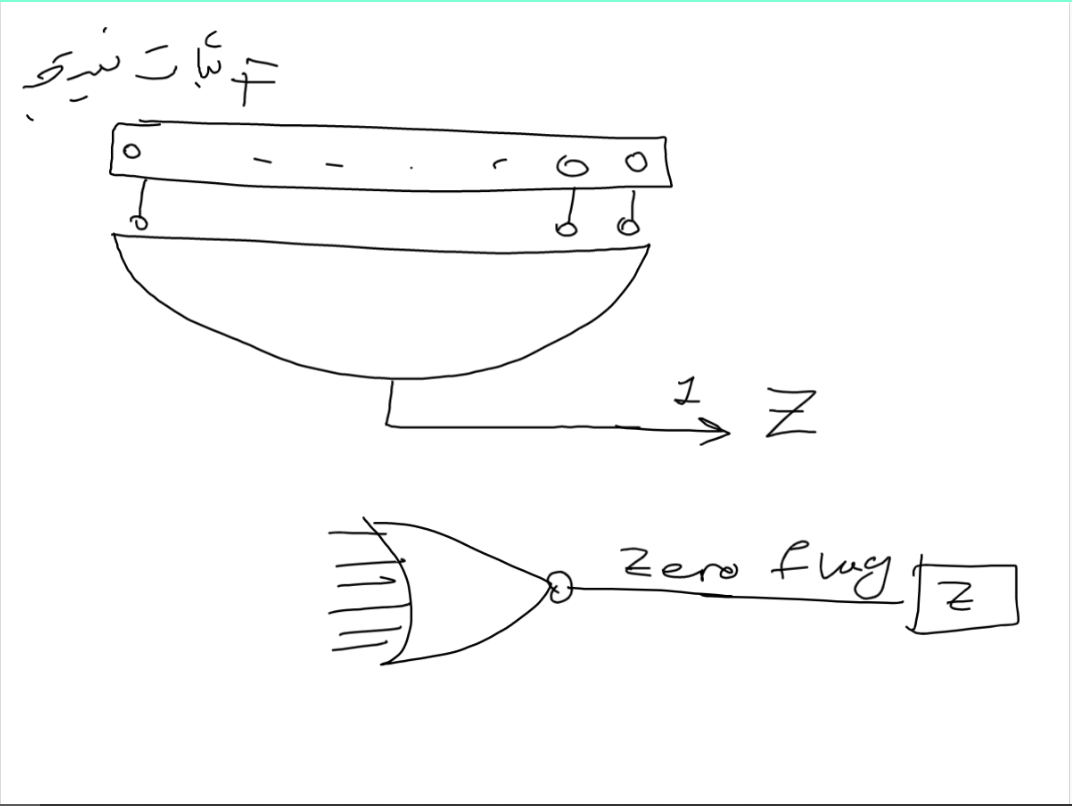 F ثبات نتیجه
0 - - . - 0 0
1 Z
Zero flag Z